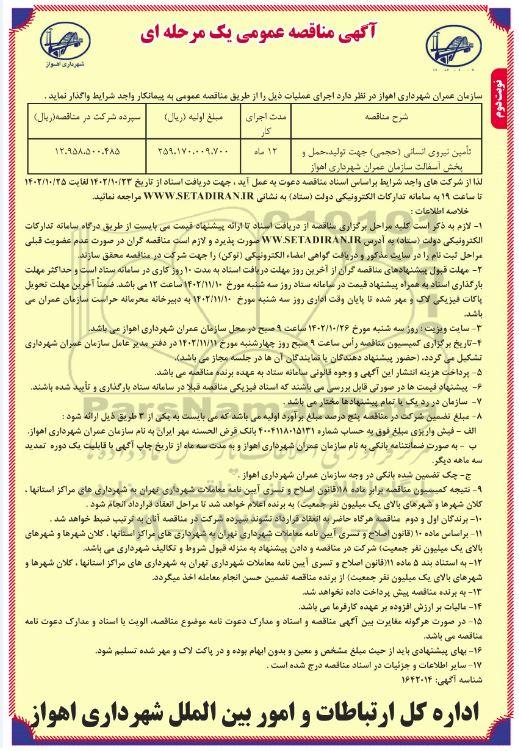 آگهی مناقصه عمومی یک مرحله ای
شهرداری اهواز
نوبت دوم
سازمان عمران شهرداری اهواز در نظر دارد اجرای عملیات ذیل را از طریق مناقصه عمومی به پیمانکار واجد شرایط واگذار نماید .
شرح مناقصه
مدت اجرای کار
مبلغ اولیه (ریال)
سپرده شرکت در مناقصه(ریال)
تأمین نیروی انسانی (حجمی) جهت تولید،حمل و پخش آسفالت سازمان عمران شهرداری اهواز
۱۲ ماه
۲۵۹.۱۷۰.۰۰۹.۷۰۰
۱۲.۹۵۸.۵۰۰.۴۸۵
لذا از شرکت های واجد شرایط براساس اسناد مناقصه دعوت به عمل آید ، جهت دریافت اسناد از تاریخ ۱۴۰۲/۱۰/۲۳ لغایت ۱۴۰۲/۱۰/۲۵
تا ساعت ۱۹ به سامانه تدارکات الکترونیکی دولت (ستاد) به نشانی WWW.SETADIRAN.IR مراجعه نمائید.
خلاصه اطلاعات :
۱- لازم به ذکر است کلیه مراحل برگزاری مناقصه از دریافت اسناد تا ارائه پیشنهاد قیمت می بایست از طریق درگاه سامانه تدارکات
الکترونیکی دولت (ستاد) به آدرس WW.SETADIRAN.IR صورت پذیرد و لازم است مناقصه گران در صورت عدم عضویت قبلی
مراحل ثبت نام را در سایت مذکور و دریافت گواهی امضاء الکترونیکی (توکن) را جهت شرکت در مناقصه محقق سازند.
۲- مهلت قبول پیشنهادهای مناقصه گران از آخرین روز مهلت دریافت اسناد به مدت ۱۰ روز کاری در سامانه ستاد است و حداکثر مهلت
بارگذاری اسناد به همراه پیشنهاد قیمت در سامانه ستاد روز سه شنبه مورخ ۱۴۰۲/۱۱/۱۰ ساعت ۱۲ می باشد. ضمناً آخرین مهلت تحویل
پاکات فیزیکی لاک و مهر شده تا پایان وقت اداری روز سه شنبه مورخ ۱۴۰۲/۱۱/۱۰ به دبیرخانه محرمانه حراست سازمان عمران می
باشد.
۳- سایت ویزیت : روز سه شنبه مورخ ۱۴۰۲/۱۰/۲۶ ساعت ۹ صبح در محل سازمان عمران شهرداری اهواز می باشد.
۴-تاریخ برگزاری کمیسیون مناقصه رأس ساعت ۹ صبح روز چهارشنبه مورخ ۱۴۰۲/۱۱/۱۱ در دفتر مدیر عامل سازمان عمران شهرداری
تشکیل می گردد، (حضور پیشنهاد دهندگان یا نمایندگان آن ها در جلسه مجاز می باشد).
۵- پرداخت هزینه انتشار این آگهی و وجوه قانونی سامانه ستاد به عهده برنده مناقصه می باشد.
۶- پیشنهاد قیمت ها در صورتی قابل بررسی می باشند که اسناد فیزیکی مناقصه قبلا در سامانه ستاد بارگذاری و تأیید شده باشند.
۷- سازمان در رد یک یا تمام پیشنهادها مختار می باشد .
۸- مبلغ تضمین شرکت در مناقصه پنج درصد مبلغ برآورد اولیه می باشد که می بایست به یکی از ۳ طریق ذیل ارائه شود :
الف - فیش واریزی مبلغ فوق به حساب شماره ۴۰۰۴۱۱۸۰۱۵۱۳۱ بانک قرض الحسنه مهر ایران به نام سازمان عمران شهرداری اهواز.
ب – به صورت ضمانتنامه بانکی به نام سازمان عمران شهرداری اهواز و به مدت سه ماه از تاریخ چاپ آگهی با قابلیت یک دوره تمدید
سه ماهه دیگر.
ج- چک تضمین شده بانکی در وجه سازمان عمران شهرداری اهواز .
۹- نتیجه کمیسیون مناقصه برابر ماده ۱۸(قانون اصلاح و تسری آیین نامه معاملات شهرداری تهران به شهرداری های مراکز استانها ،
کلان شهرها و شهرهای بالای یک میلیون نفر جمعیت) به برنده اعلام خواهد شد تا مراحل انعقاد قرارداد انجام شود .
۱۰- برندگان اول و دوم مناقصه هرگاه حاضر به انعقاد قرارداد نشوند سپرده شرکت در مناقصه آنان به ترتیب ضبط خواهد شد .
۱۱- براساس ماده ۱۰ (قانون اصلاح و تسری آیین نامه معاملات شهرداری تهران به شهرداری های مراکز استانها ، کلان شهرها و شهرهای
بالای یک میلیون نفر جمعیت) شرکت در مناقصه و دادن پیشنهاد به منزله قبول شروط و تکالیف شهرداری می باشد.
۱۲- به استناد بند ۵ ماده ۱۱(قانون اصلاح و تسری آیین نامه معاملات شهرداری تهران به شهرداری های مراکز استانها ، کلان شهرها و
شهرهای بالای یک میلیون نفر جمعیت) از برنده مناقصه تضمین حسن انجام معامله اخذ میگردد.
۱۳- به برنده مناقصه پیش پرداخت داده نخواهد شد.
۱۴- مالیات بر ارزش افزوده بر عهده کارفرما می باشد.
۱۵- در صورت هرگونه مغایرت بین آگهی مناقصه و اسناد و مدارک دعوت نامه موضوع مناقصه، الویت با اسناد و مدارک دعوت نامه
مناقصه می باشد.
۱۶- بهای پیشنهادی باید از حیث مبلغ مشخص و معین و بدون ابهام بوده و در پاکت لاک و مهر شده تسلیم شود.
۱۷- سایر اطلاعات و جزئیات در اسناد مناقصه درج شده است .
شناسه آگهی: ۱۶۴۲۰۱۴
اداره کل ارتباطات و امور بین الملل شهرداری اهواز